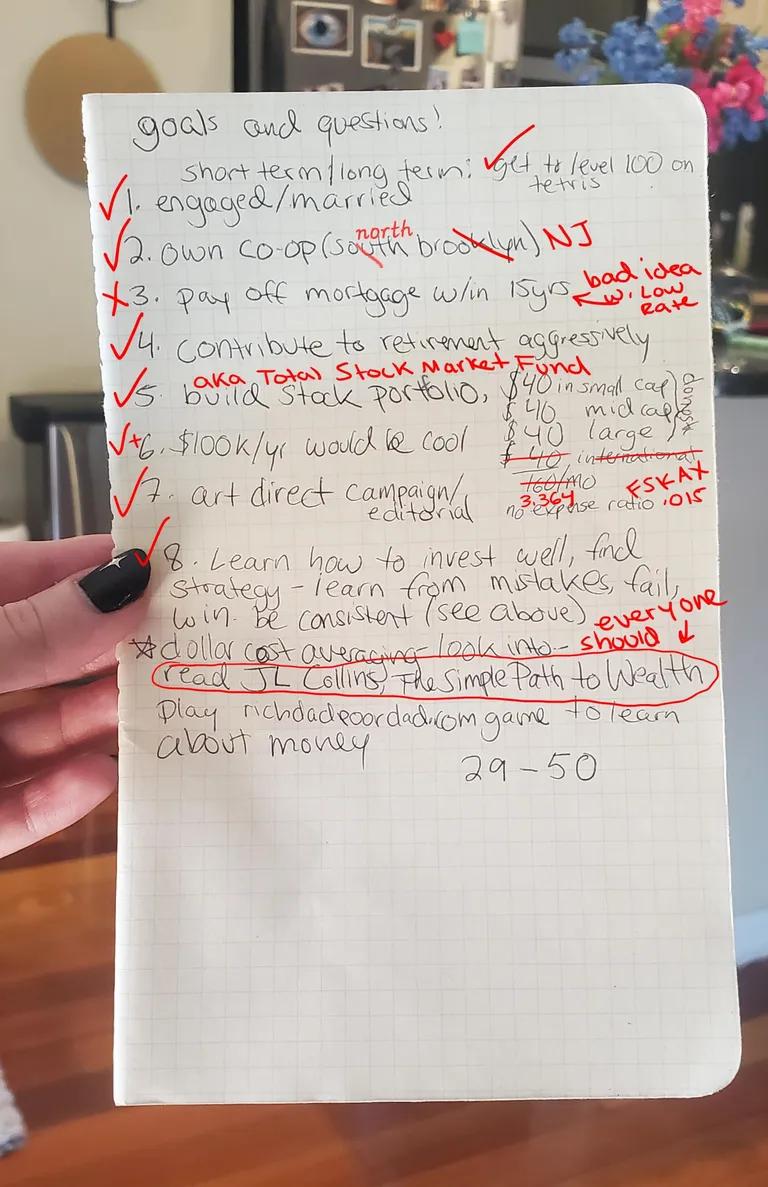 goals and questions!
short term/long term: ✓ get to level 100 on
tetris
✓ 1. engaged/married
north
✓ 2. own co-op (south brooklyn) NJ
X 3. pay off mortgage w/in 15yrs ← bad idea
w. Low
Rate
✓ 4. contribute to retirement aggressively
aka Total Stock Market Fund
✓ 5. build stock portfolio, $40 in small cap
$40 mid cap
✓+ 6. $100k/yr would be cool $40 large
$40 international
160/mo
✓ 7. art direct campaign/
editorial
3,364 FSKAX
no expense ratio .015
✓ 8. Learn how to invest well, find
strategy - learn from mistakes, fail,
win. be consistent (see above)
everyone
☆ dollar cost averaging - look into - should ↓
read JL Collins, The Simple Path to Wealth
Play richdadpoordad.com game to learn
about money
29-50